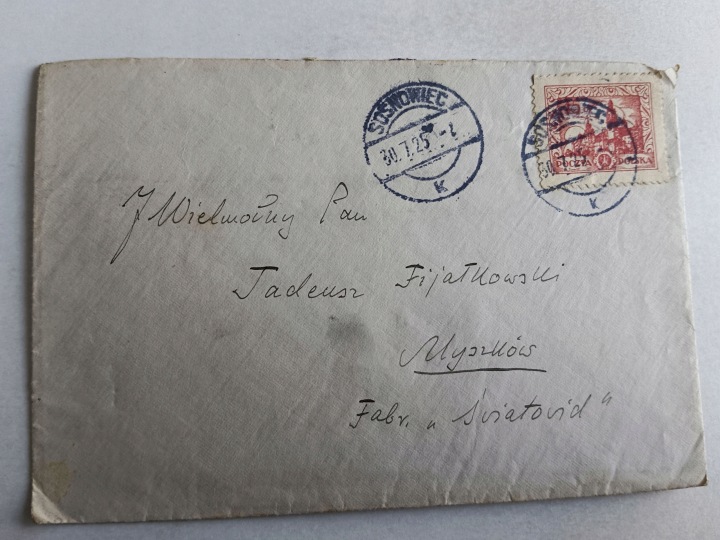 SOSNOWIEC
30.7.25
K
SOSNOWIEC
30.7.25
K
POCZTA POLSKA
J Wielmożny Pan
Tadeusz Fijałkowski
Myszków
Fabr. „Światovid"